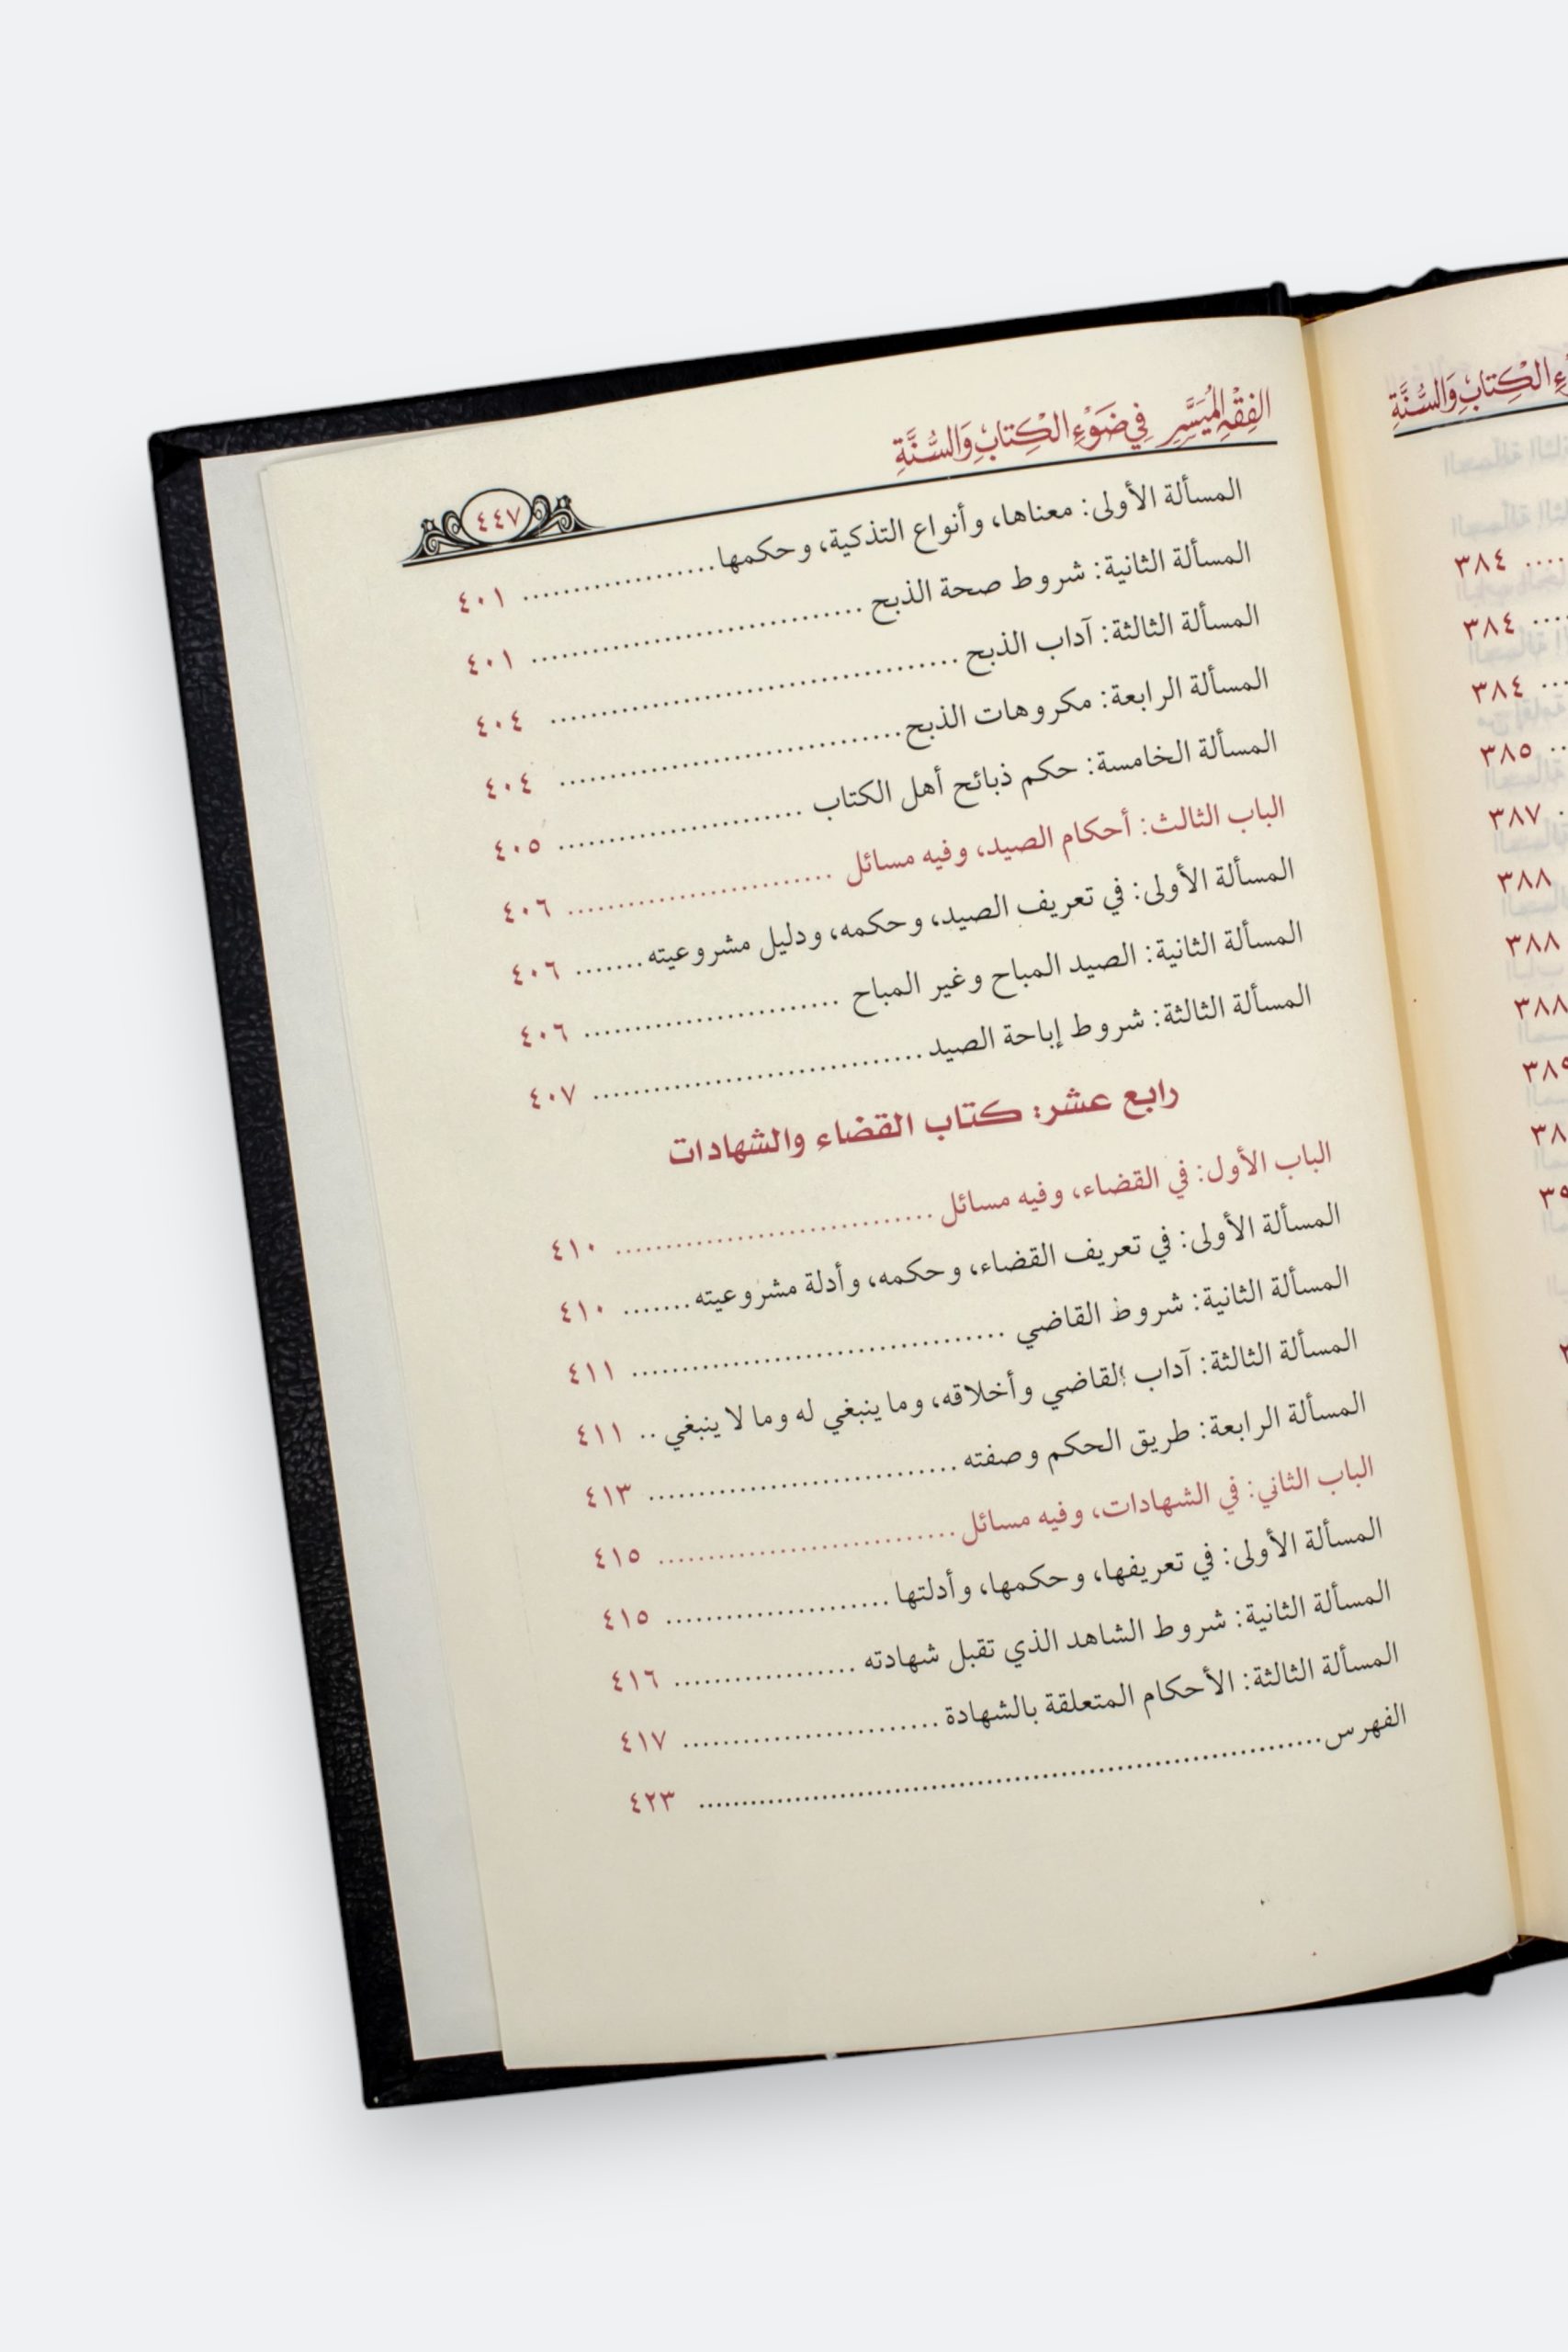 الفِقْهُ المُيَسَّرِ فِي ضَوْءِ الْكِتَابِ وَالسُّنَّةِ
٤٤٧
المسألة الأولى: معناها، وأنواع التذكية، وحكمها .................. ٤٠١
المسألة الثانية: شروط صحة الذبح .................. ٤٠١
المسألة الثالثة: آداب الذبح .................. ٤٠٤
المسألة الرابعة: مكروهات الذبح .................. ٤٠٤
المسألة الخامسة: حكم ذبائح أهل الكتاب .................. ٤٠٥
الباب الثالث: أحكام الصيد، وفيه مسائل .................. ٤٠٦
المسألة الأولى: في تعريف الصيد، وحكمه، ودليل مشروعيته ....... ٤٠٦
المسألة الثانية: الصيد المباح وغير المباح .................. ٤٠٦
المسألة الثالثة: شروط إباحة الصيد .................. ٤٠٧
رابع عشر: كتاب القضاء والشهادات
الباب الأول: في القضاء، وفيه مسائل .................. ٤١٠
المسألة الأولى: في تعريف القضاء، وحكمه، وأدلة مشروعيته ....... ٤١٠
المسألة الثانية: شروط القاضي .................. ٤١١
المسألة الثالثة: آداب القاضي وأخلاقه، وما ينبغي له وما لا ينبغي .. ٤١١
المسألة الرابعة: طريق الحكم وصفته .................. ٤١٣
الباب الثاني: في الشهادات، وفيه مسائل .................. ٤١٥
المسألة الأولى: في تعريفها، وحكمها، وأدلتها .................. ٤١٥
المسألة الثانية: شروط الشاهد الذي تقبل شهادته .................. ٤١٦
المسألة الثالثة: الأحكام المتعلقة بالشهادة .................. ٤١٧
الفهرس .................. ٤٢٣
الْكِتَابِ وَالسُّنَّةِ
٣٨٤
٣٨٤
٣٨٤
٣٨٥
٣٨٧
٣٨٨
٣٨٨
٣٨٨